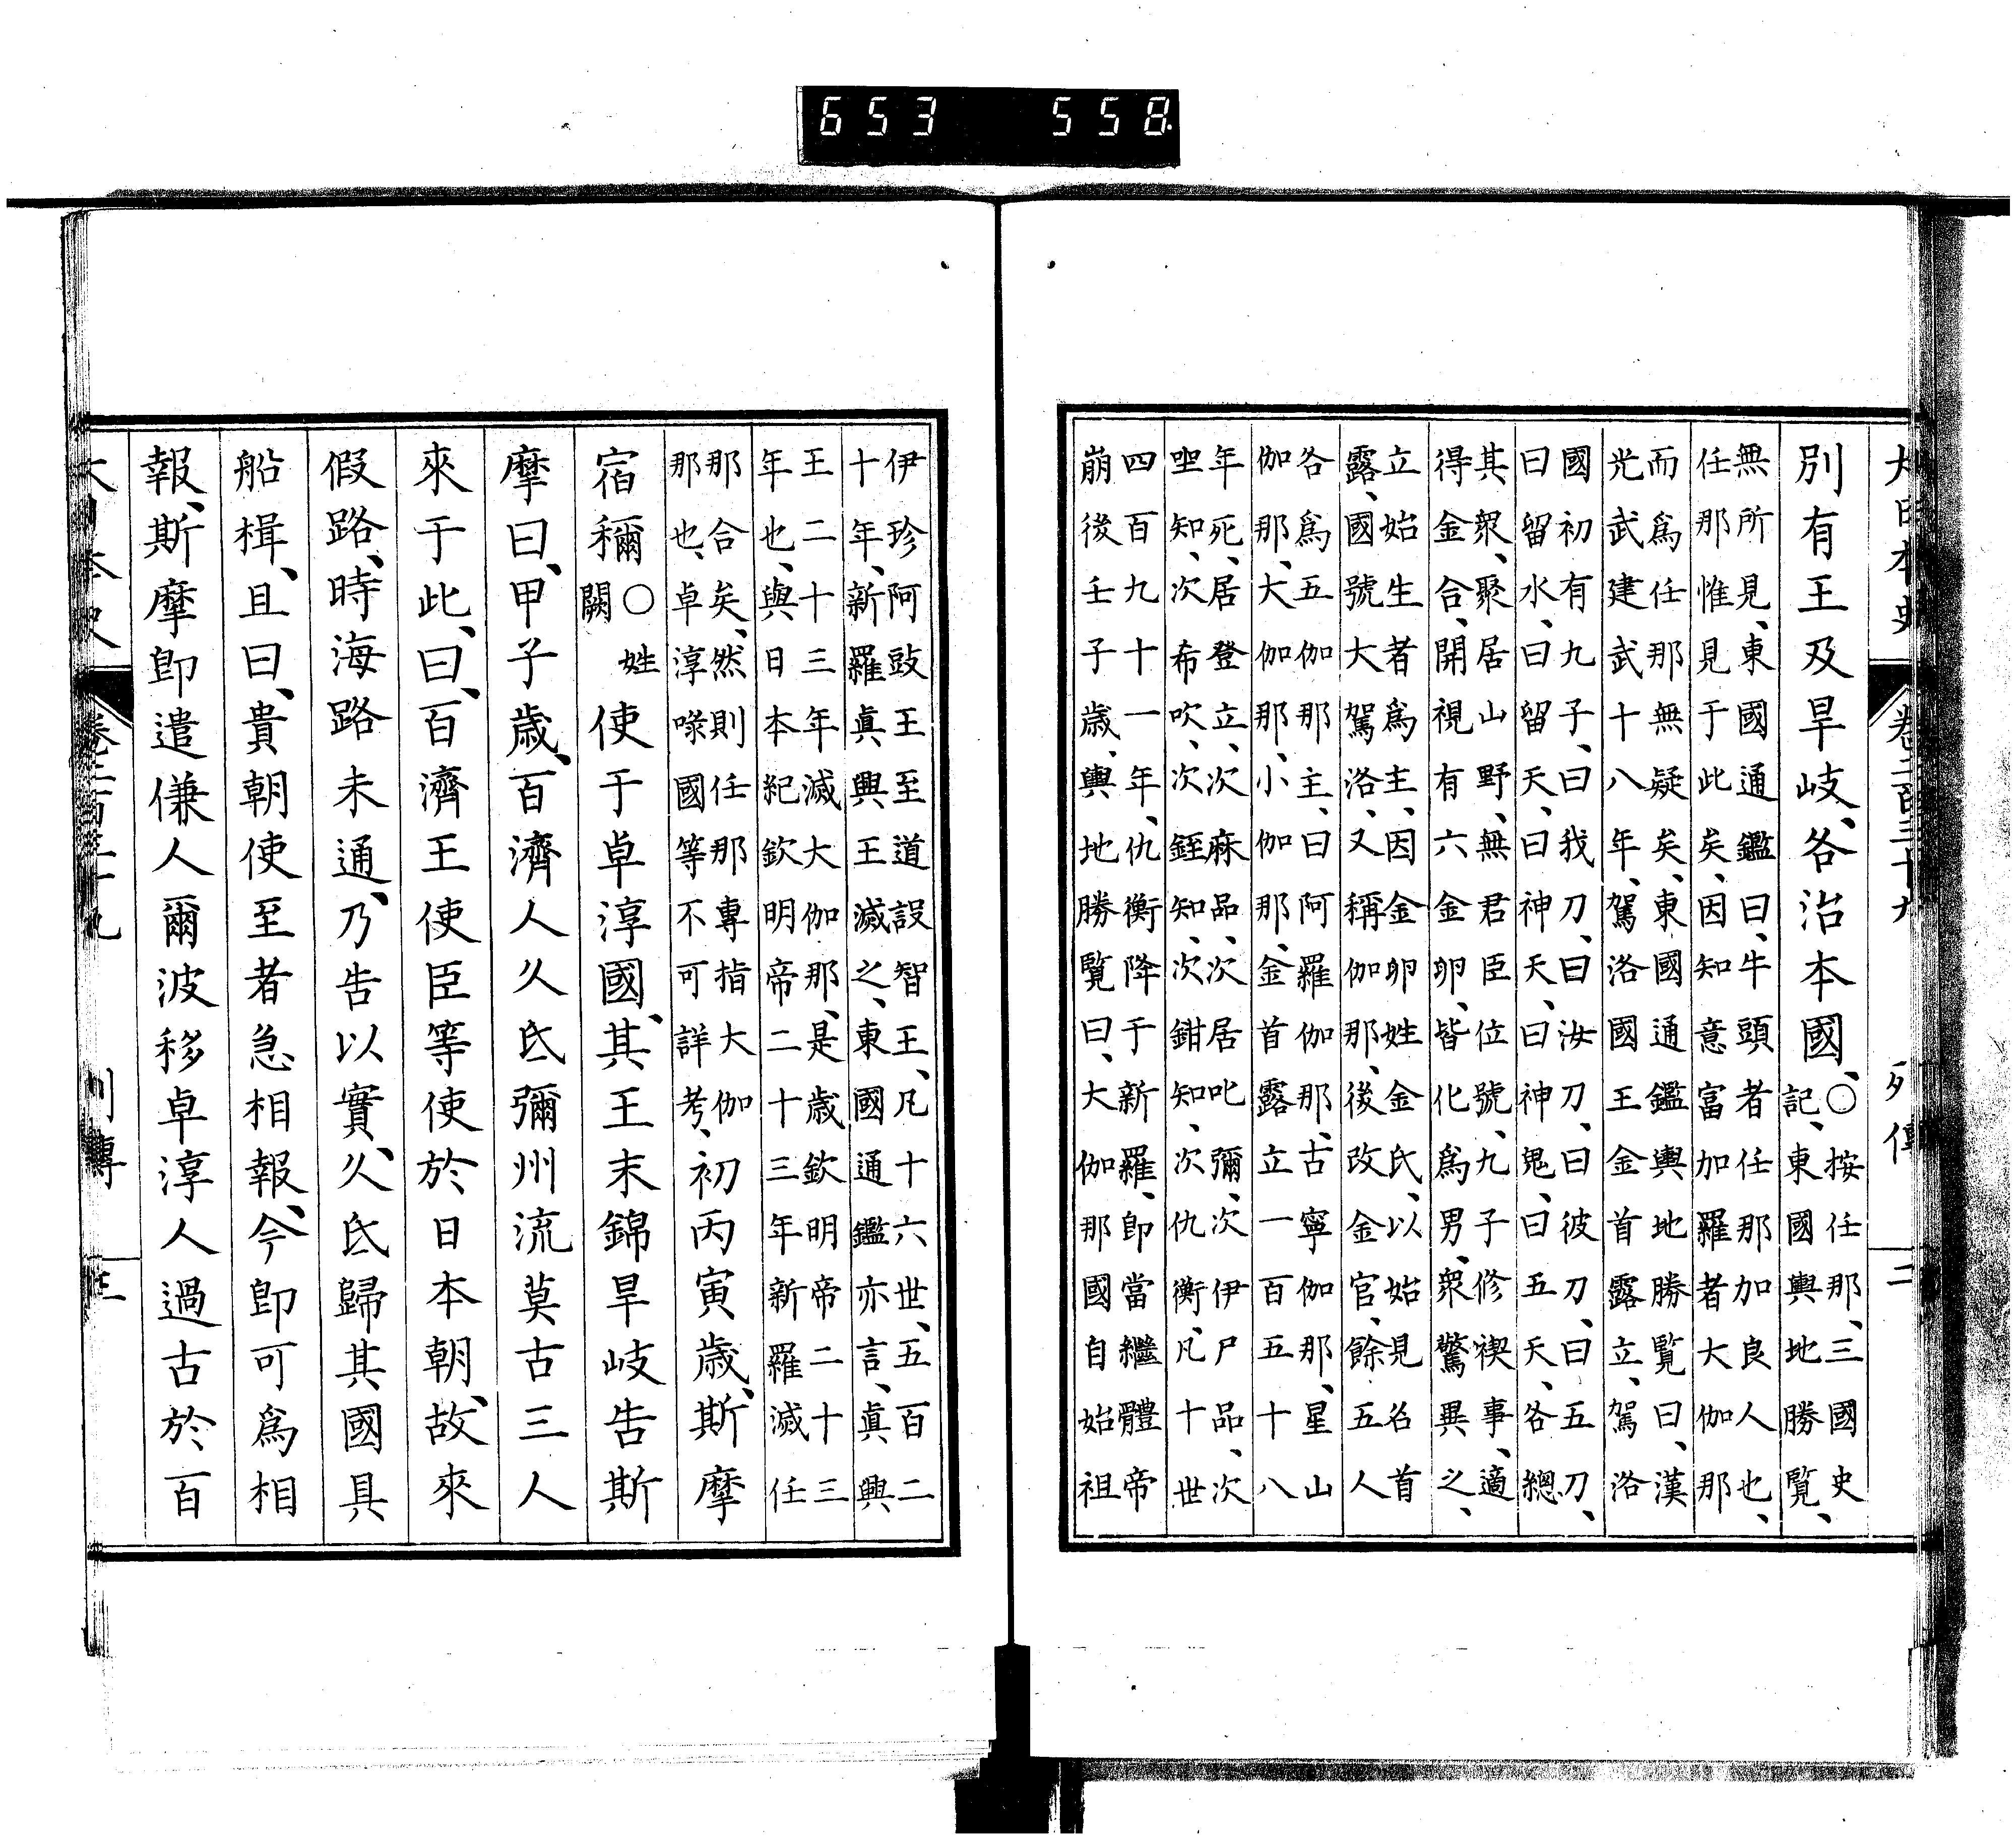 大日本史 卷二百三十九 列傳 二
別有王及旱岐、各治本國、○按任那、三國史
記、東國輿地勝覽、
無所見、東國通鑑曰、牛頭者任那加良人也、
任那惟見于此矣、因知意富加羅者大伽那
而爲任那無疑矣、東國通鑑輿地勝覽曰、漢
光武建武十八年、駕洛國王金首露立、駕洛
國初有九子、曰我刀、曰汝刀、曰彼刀、曰五刀、
曰留水、曰留天、曰神天、曰神鬼、曰五天、各總
其衆、聚居山野、無君臣位號、九子修禊事、適
得金合、開視有六金卵、皆化爲男、衆驚異之、
立始生者爲主、因金卵姓金氏、以始見名首
露、國號大駕洛、又稱伽那、後改金官、餘五人
各爲五伽那主、曰阿羅伽那、古寧伽那、星山
伽那、大伽那、小伽那、金首露立一百五十八
年死、居登立、次麻品、次居叱彌、次伊尸品、次
坐知、次希吹、次銍知、次鉗知、次仇衡、凡十世
四百九十一年、仇衡降于新羅、卽當繼體帝
崩後壬子歲、輿地勝覽曰、大伽那國自始祖
伊珍阿豉王至道設智王、凡十六世、五百二
十年、新羅眞興王滅之、東國通鑑亦言、眞興
王二十三年滅大伽那、是歲欽明帝二十三
年也、與日本紀欽明帝二十三年新羅滅任
那合矣、然則任那專指大伽
那也、卓淳㖨國等不可詳考、初丙寅歲、斯摩
宿禰○姓
闕使于卓淳國、其王末錦旱岐告斯
摩曰、甲子歲、百濟人久氐彌州流莫古三人
來于此、曰、百濟王使臣等使於日本朝、故來
假路、時海路未通、乃告以實、久氐歸其國具
船楫、且曰、貴朝使至者急相報、今卽可爲相
報、斯摩卽遣傔人爾波移卓淳人過古於百
大日本史 卷二百三十九 列傳 三